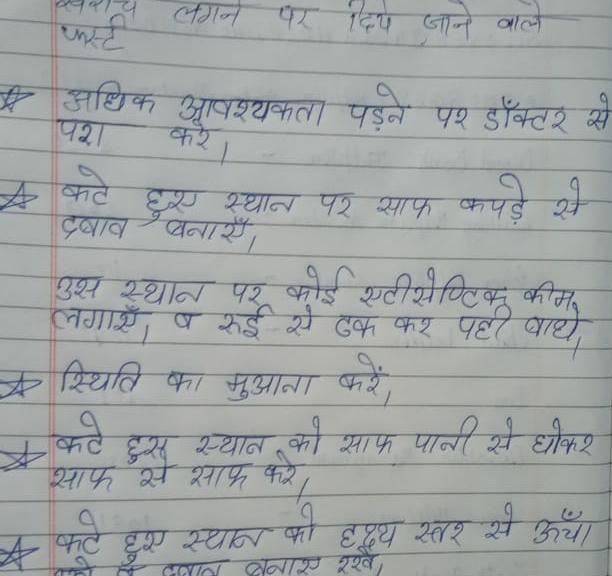 खरोंच लगने पर दिये जाने वाले
फर्स्ट
अधिक आवश्यकता पड़ने पर डॉक्टर से
परा करे,
कटे हुए स्थान पर साफ कपड़े से
दबाव बनाएँ,
उस स्थान पर कोई एटीसेप्टिक कीम
लगाएँ, व रुई से ढक कर पट्टी बाधे,
स्थिति का मुआना करें,
कटे हुए स्थान को साफ पानी से धोकर
साफ से साफ करे,
कटे हुए स्थान को हृदय स्तर से ऊँचा
दबाव बनाए रखें,